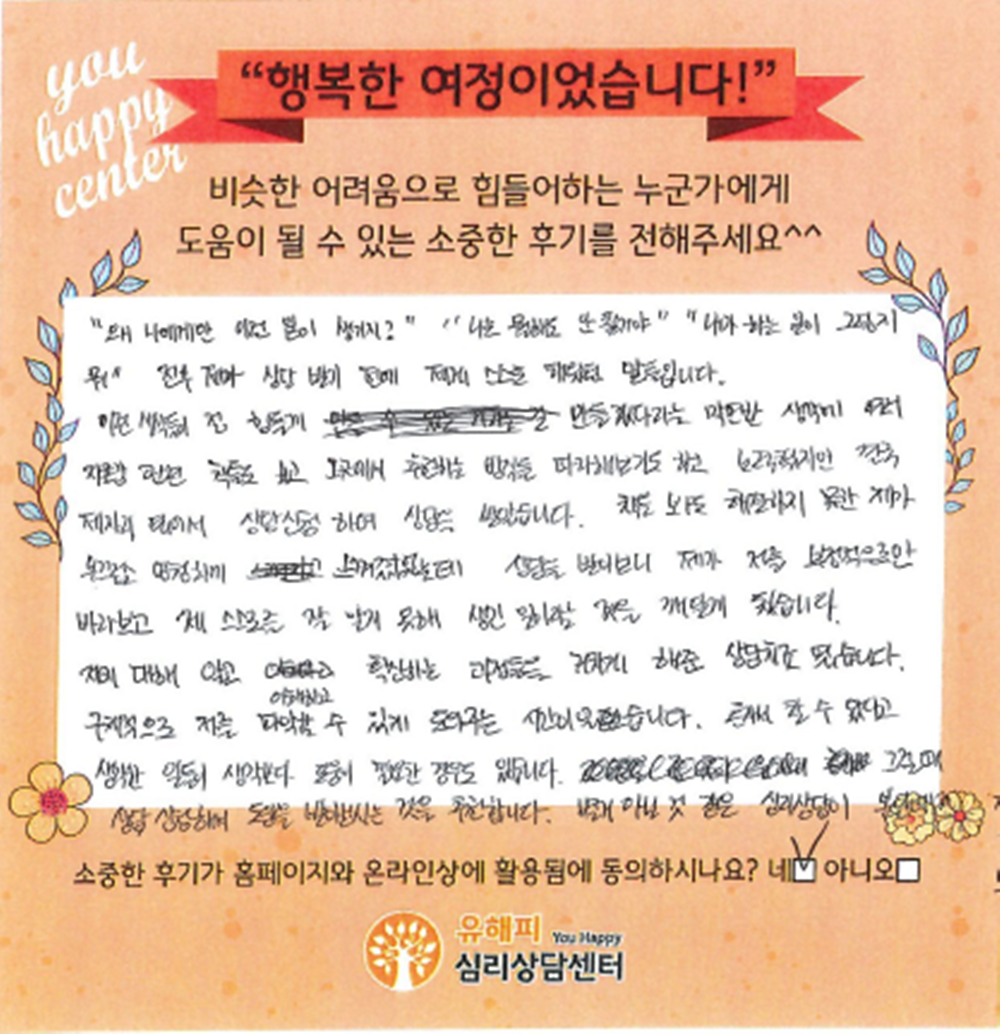 you
happy
center
“행복한 여정이었습니다!”
비슷한 어려움으로 힘들어하는 누군가에게
도움이 될 수 있는 소중한 후기를 전해주세요^^
"왜 나에게만 이런 일이 생기지?" "나는 뭘해도 안 될거야" "내가 하는 일이 그렇지
뭐" 전부 제가 상담 받기 전에 제게 스스로 말들입니다.
이런 생각들이 절 힘들게 만들겠다라는 막연한 생각에 여러
자료와 관련 책들도 보고 그곳에서 추천하는 방식들 따라해보기도 하고
상담신청 하여 상담을 받았습니다. 책도 봐도 해결하지 못한 제가
느껴졌었는데 상담을 받다보니 제가 저를 부정적으로만
바라보고 제 스스로를 잘 알지 못해 생긴 일이란 것을 깨닫게 됐습니다.
저에 대해 알고 이해하고 확신하는 과정들을 거치게 해준 상담치료 였습니다.
구체적으로 저를 파악할 수 있게 도와주는 시간이었습니다. 혼자서 할 수 있다고
생각한 일들이 생각보다 도움이 필요한 경우도 있습니다. 그럴 때
상담하며 도움을 받아보시는 것을 추천합니다. 별게 아닐 것 같은 심리상담이
소중한 후기가 홈페이지와 온라인상에 활용됨에 동의하시나요? 네☑ 아니오☐
유해피 You Happy
심리상담센터